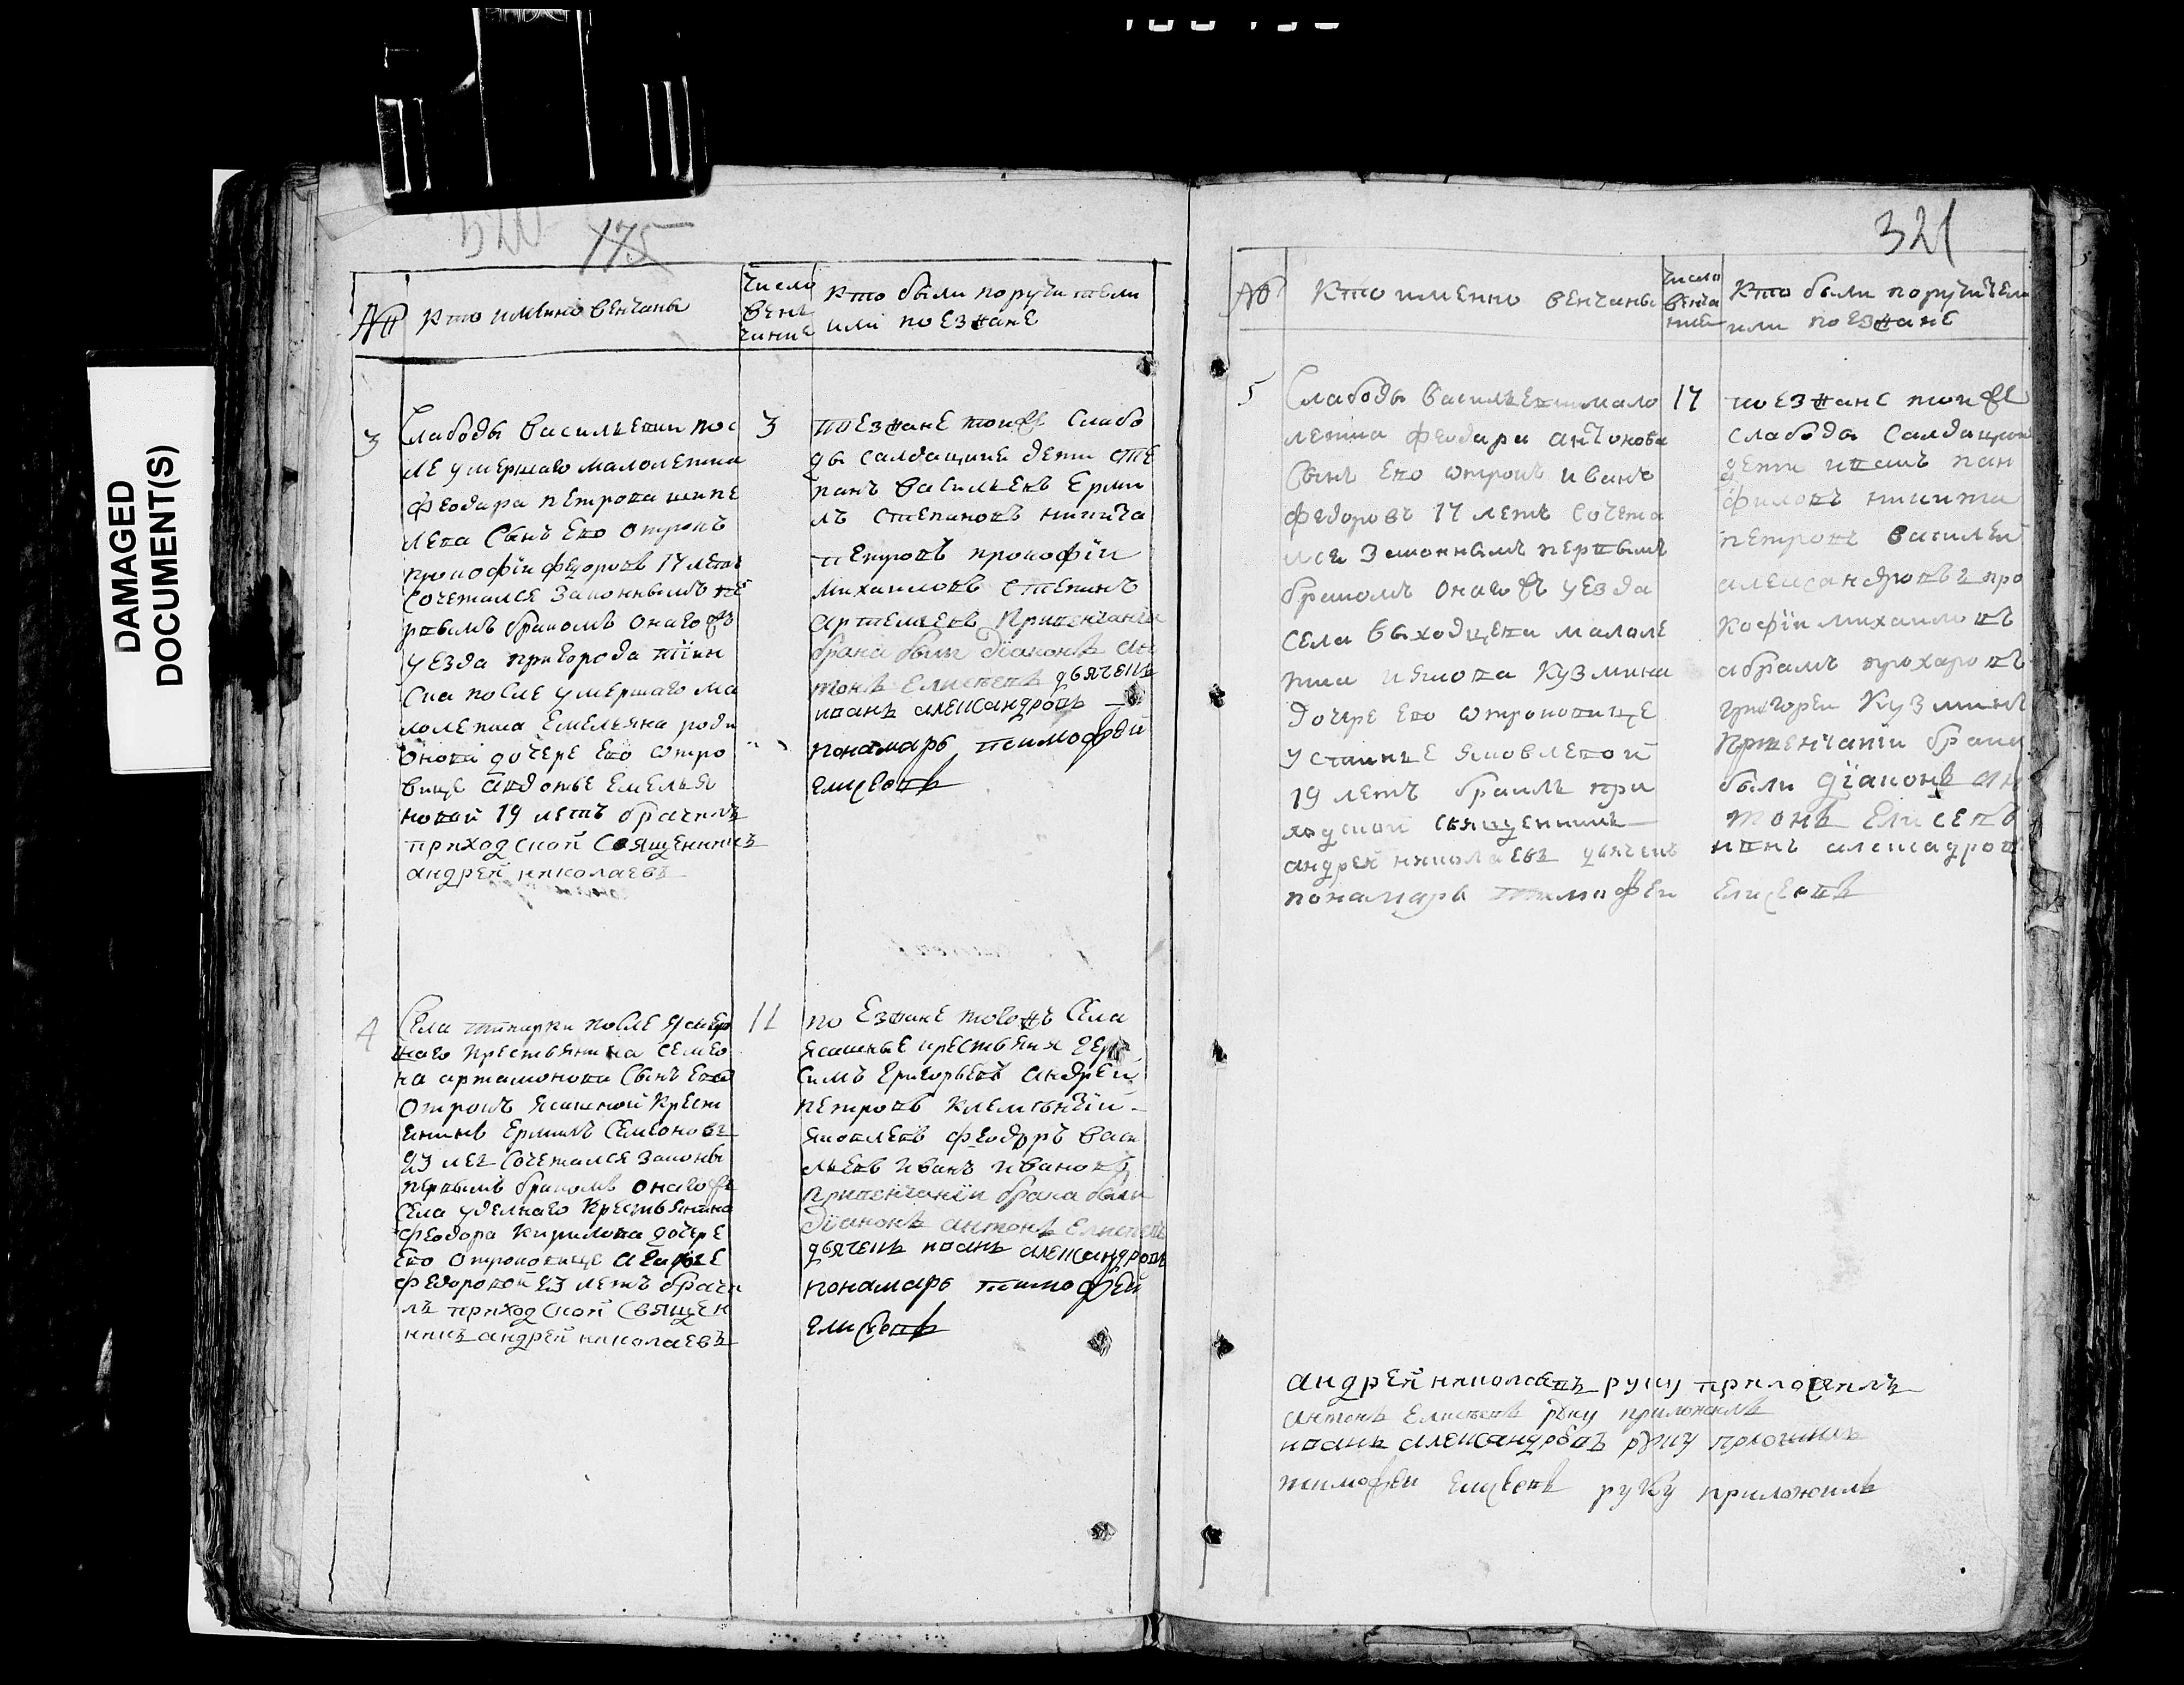 DAMAGED
DOCUMENT(S)
175
№
Кто имянно венчаны
Число
вен
чание
Кто были поручители
или поезжане
3
Слабоды васильевки пос
ле умершаго малолетка
феодара петрова шипе
лева сынъ ево отрокъ
прокофiи федоровъ 17 летъ
сочетался законнымъ пе
рвымъ бракомъ онаго жъ
уезда пригорода тiин
ска после умершаго ма
лолетка Емельяна роди
онова дочере ево отро
вице авдотье емелья
новой 19 летъ брачилъ
приходской священникъ
андрей николаевъ
3
поезжане тои же слабо
ды салдацкие дети сте
панъ васильевъ Ерми
лъ степановъ никита
петровъ прокофiи
михаиловъ степанъ
артемьевъ при венчанiи
брака были дiаконъ ан
тонъ Елисеевъ дьячекъ
иванъ александровъ
понамарь тимофей
елисеевъ
4
Села после умер
шаго крестьянина семео
на артамонова сынъ ево
отрокъ ясашной крест
янинъ ермилъ семеоновъ
23 лет сочетался законы
первымъ бракомъ онаго же
села уделнаго крестьянина
феодора кирилова дочере
ево отроковице агафье
федоровой 23 летъ брачи
лъ приходской священ
никъ андрей николаевъ
11
поезжане того жъ села
ясашные крестьяня гера
симъ григорьевъ андрей
петровъ клементiй
яковлевъ феодоръ васи
льевъ иванъ ивановъ
при венчанiи брака были
дiаконъ антонъ Елисеевъ
дьячекъ иванъ александровъ
понамарь тимофей
елисеевъ
321
№
Кто именно венчаны
число
венча
ния
Кто были поручители
или поезжане
5
Слабоды васильевки мало
летка феодара антонова
сынъ ево отрокъ иванъ
федоровъ 17 летъ сочета
лся законнымъ первымъ
бракомъ онаго жъ уезда
села выходцева малоле
тки якова кузмина
дочере ево отроковице
устинье яковлевой
19 летъ бракъ при
ходской священникъ
андрей николаевъ дьячекъ
понамарь тимофеи
17
поезжане тои же
слабоды салдацкие
дети иванъ пан
филовъ никита
петровъ василей
александровъ про
кофiи михаиловъ
абрамъ прохаровъ
григореи кузминъ
при венчанiи брака
были дiаконъ ан
тонъ Елисеевъ
иванъ алексадровъ
елисеевъ
андрей николаевъ руку приложилъ
антонъ Елисеевъ руку приложилъ
иванъ александровъ руку приложилъ
тимофеи елисеевъ руку приложилъ